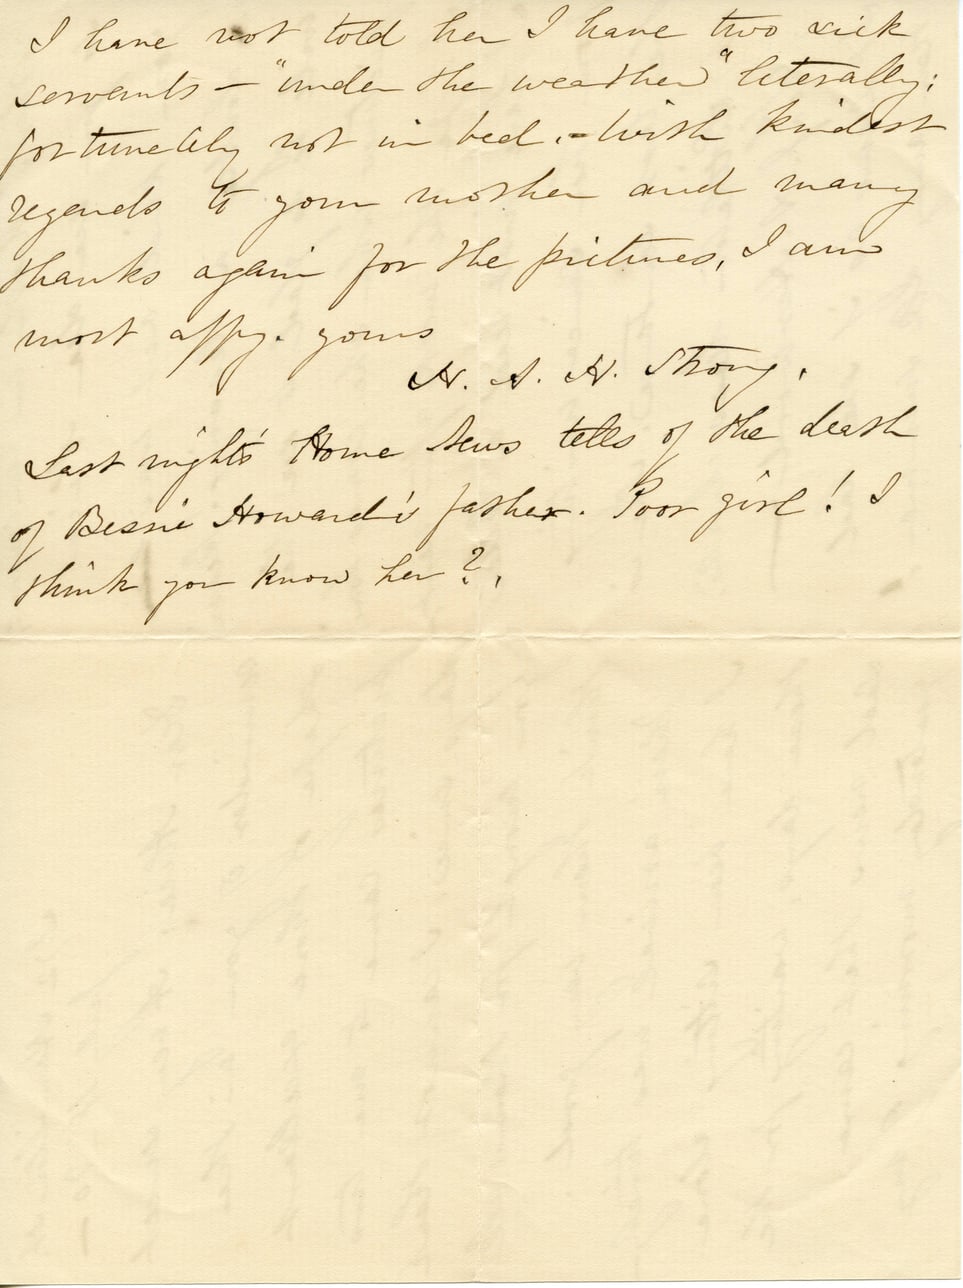 I have not told her I have two sick
servants – "under the weather" literally;
fortunately not in bed. – With kindest
regards to your mother and many
thanks again for the pictures, I am
most affy. yours
H. A. H. Strong.
Last night's Home News tells of the death
of Bessie Howard's father. Poor girl! I
think you know her?.